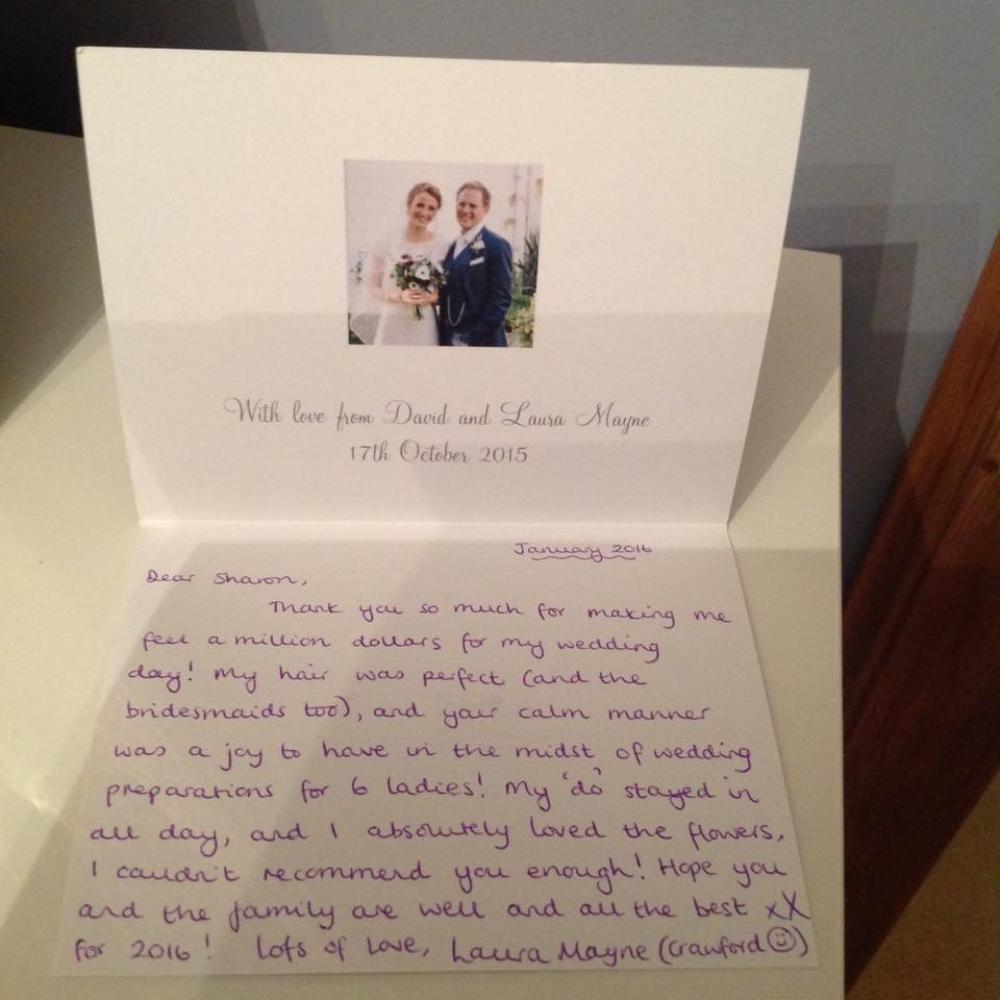 With love from David and Laura Mayne
17th October 2015
January 2016
Dear Sharon,
Thank you so much for making me
feel a million dollars for my wedding
day! My hair was perfect (and the
bridesmaids too), and your calm manner
was a joy to have in the midst of wedding
preparations for 6 ladies! My 'do' stayed in
all day, and I absolutely loved the flowers,
I couldn't recommend you enough! Hope you
and the family are well and all the best xX
for 2016! Lots of Love, Laura Mayne (Crawford☺)